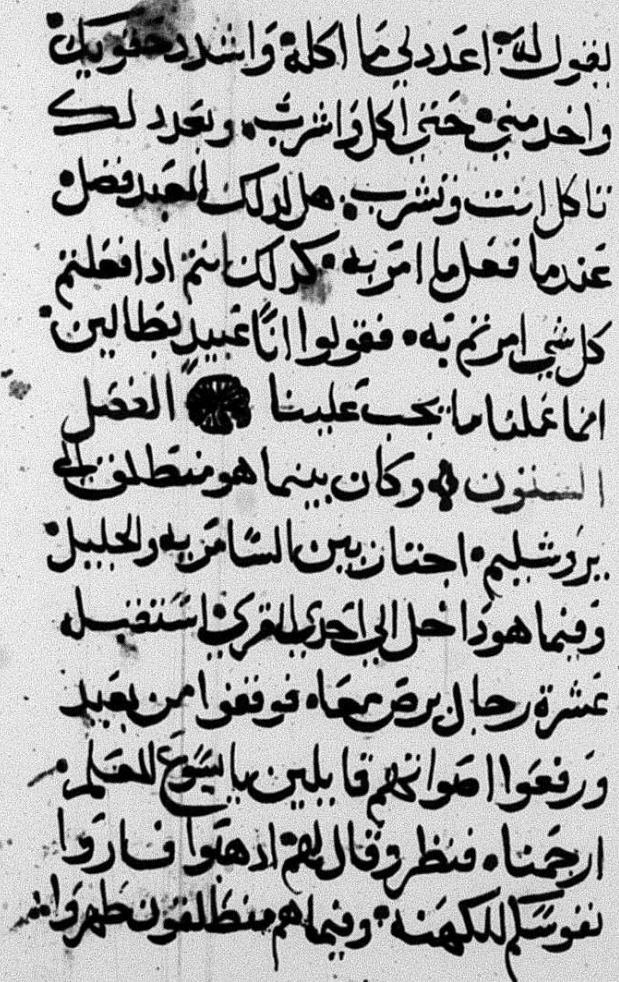 يقول له اعددلي ما اكله واشدد حقويك
واخدمني حتي اكل واشرب. وبعد دلك
تاكل انت وتشرب. هل لدلك العبد فضل
عندما فعل ما امر به. كدلك انتم ادا فعلتم
كل شي امرتم به. فقولوا انا عبيد بطالين.
انما عملنا ما يجب علينا الفصل
الستون وكان بينما هو منطلق الي
يروشليم. اجتاز بين السامريه والجليل.
وفيما هو داخل الي احدي القري استقبله
عشرة رجال برص معا. فوقفوا من بعيد
ورفعوا اصواتهم قايلين يا يسوع المعلم.
ارحمنا. فنظر وقال لهم ادهبوا فاروا
نفوسكم للكهنه. وفيما هم منطلقون طهروا.